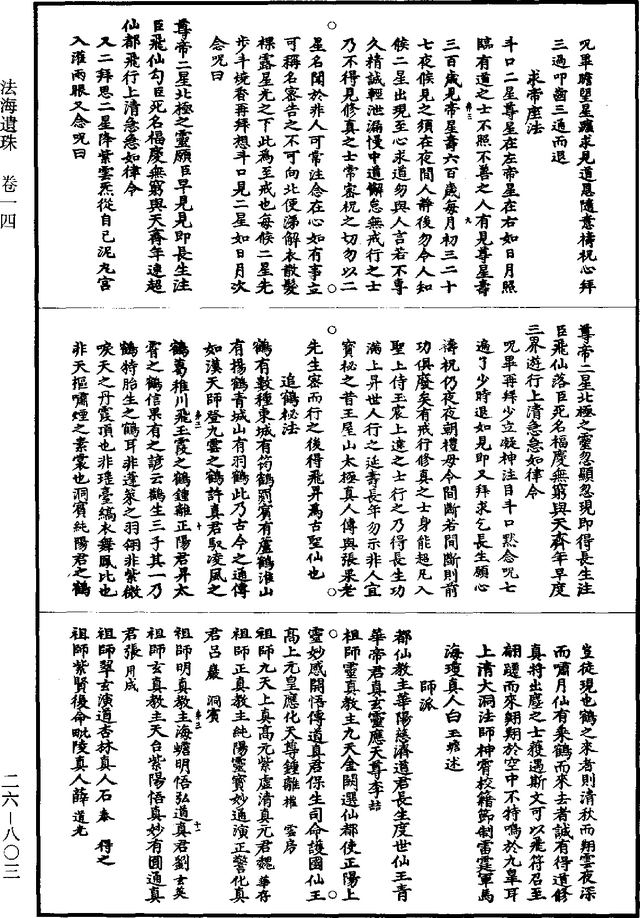 法海遺珠　卷一四
二六—八〇三
咒畢瞻望星躔求見道恩隨意禱祝心拜
三過叩齒三通而退
求帝座法
斗口二星尊星在左帝星在右如日月照
臨有道之士不照不善之人有見尊星壽
三百歲見帝星壽六百歲每月初三二十
七夜候見之須在夜間人靜後勿令人知
候二星出現至心求道勿與人言若不專
久精誠輕泄漏慢中道懈怠無戒行之士
乃不得見修真之士常密祝之切勿以二
星名聞於非人可常注念在心如有事立
可稱名密告之不可向北便涕解衣散髮
裸露星光之下此為至戒也每候二星先
步斗燒香再拜想斗口見二星如日月次
念咒曰
尊帝二星北極之靈願臣早見見即長生注
臣飛仙勾臣死名福慶無窮與天齊年速超
仙都飛行上清急急如律令
又二拜思二星降紫雲炁從自己泥丸宮
入灌兩眼又念咒曰
尊帝二星北極之靈忽顯忽現即得長生注
臣飛仙落臣死名福慶無窮與天齊年早度
三界遊行上清急急如律令
咒畢再拜少立凝神注目斗口默念咒七
遍了少時退如見即又拜求乞長生願心
禱祝仍夜夜朝禮毋令間斷若間斷則前
功俱廢矣有戒行修真之士身能超凡入
聖上侍玉宸上達之士行之乃得長生功
滿上昇世人行之延壽長年勿示非人宜
寶秘之昔王屋山太極真人傳與張果老
先生密而行之後得飛昇為古聖仙也
追鶴秘法
鶴有數種東城有筠鶴罽賓有蘆鶴淮山
有揚鶴青城山有羽鶴此乃古今之通傳
如漢天師登九雲之鶴許真君馭凌風之
鶴葛稚川飛玉霞之鶴鍾離正陽君昇太
霄之鶴信果有之諺云鸛生三子其一乃
鶴特胎生之鶴耳非蓬萊之羽翎非紫微
唳天之丹霞頂也非瑤臺縞衣舞鳳比也
非天樞嘯煙之素裳也洞賓純陽君之鶴
豈徒現也鶴之來者則清秋而翔雲夜深
而嘯月仙有乘鶴而來去者誠有得道修
真將出塵之士獲遇斯文可以飛符召至
翩躚而來翱翔於空中不持鳴於九皐耳
上清大洞法師神霄校籍節制雷霆軍馬
海瓊真人白玉蟾述
師派
都仙教主華陽慈濟道君長生度世仙王青
華帝君真玄靈應天尊李喆
祖師靈真教主九天金闕選仙都使正陽上
靈妙感開悟傳道真君保生司命護國仙王
高上元皇應化天尊鍾離權　雲房
祖師九天上真高元紫虛清真元君魏華存
祖師正真教主純陽靈寶妙通演正警化真
君呂巖　洞賓
祖師明真教主海蟾明悟弘道真君劉玄英
祖師玄真教主天台紫陽悟真妙有圓通真
君張用成
祖師翠玄演道杏林真人石泰　得之
祖師紫賢復命毗陵真人薛道光